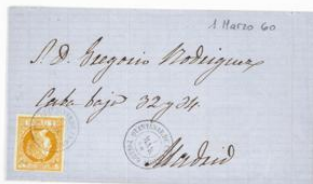 1 Marzo 60
S. D. Gregorio Rodriguez
Caba baja 32 y 34
Madrid